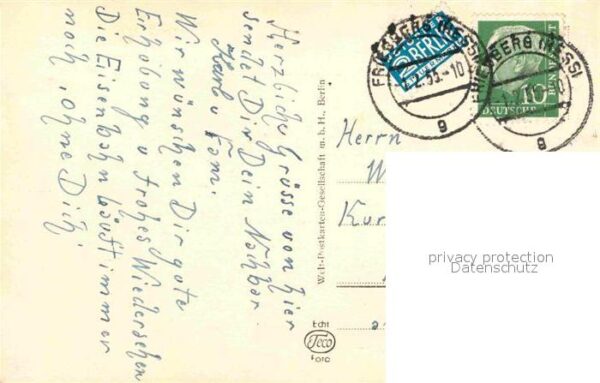 Herzliche Grüsse von hier
sendet Dir Dein Nachbar
u Fam.
Wir wünschen Dir gute
Erholung u frohes Wiedersehen
Die Eisenbahn läuft immer
noch, ohne Dich.
Welt-Postkarten-Gesellschaft m.b.H., Berlin
Echt
Teco
Foto
FRIEDBERG (HESS)
g
2 BERLIN
FRIEDBERG (HESS)
g
10
DEUTSCHE
BUNDESPOST
Herrn
W
Kur
privacy protection
Datenschutz